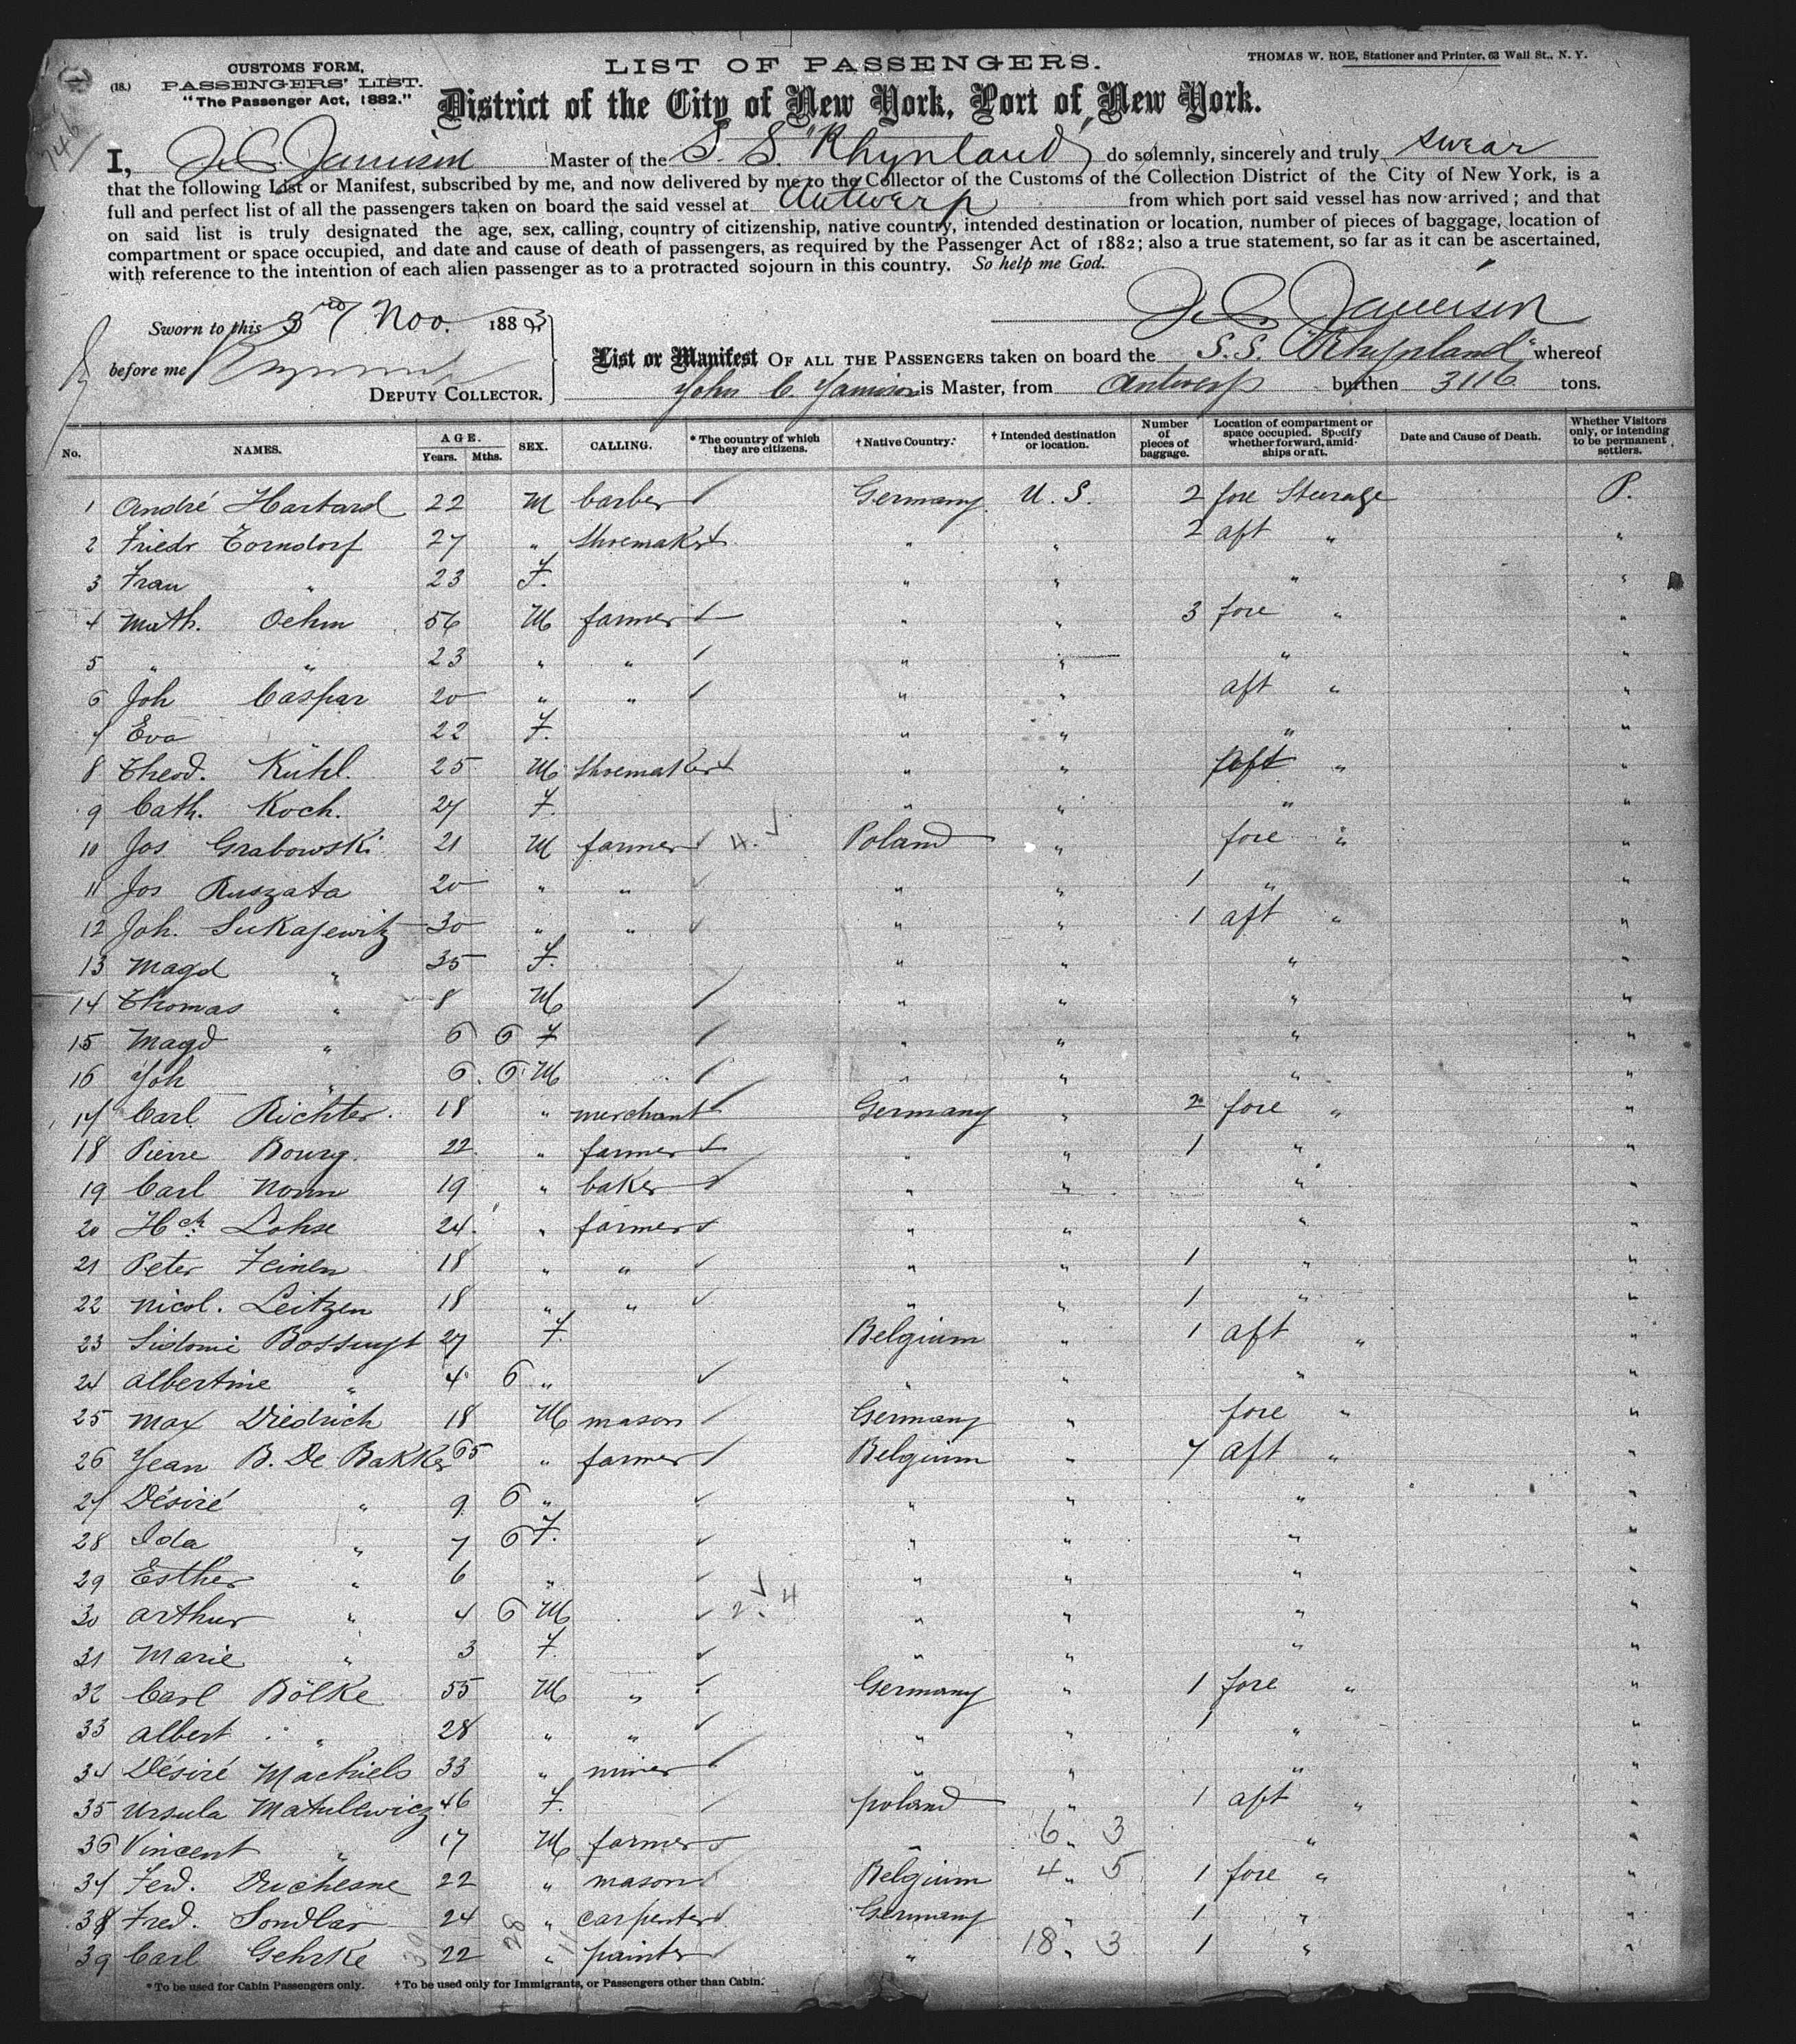 CUSTOMS FORM,
(18.) PASSENGERS' LIST.
"The Passenger Act, 1882."
LIST OF PASSENGERS.
THOMAS W. ROE, Stationer and Printer, 63 Wall St., N. Y.
District of the City of New York, Port of New York.
I, J. C. Jamison Master of the S. S. "Rhynland" do solemnly, sincerely and truly swear
that the following List or Manifest, subscribed by me, and now delivered by me to the Collector of the Customs of the Collection District of the City of New York, is a
full and perfect list of all the passengers taken on board the said vessel at Antwerp from which port said vessel has now arrived; and that
on said list is truly designated the age, sex, calling, country of citizenship, native country, intended destination or location, number of pieces of baggage, location of
compartment or space occupied, and date and cause of death of passengers, as required by the Passenger Act of 1882; also a true statement, so far as it can be ascertained,
with reference to the intention of each alien passenger as to a protracted sojourn in this country. So help me God.
J. C. Jamison
Sworn to this 3rd Nov. 1883
before me
DEPUTY COLLECTOR.
List or Manifest OF ALL THE PASSENGERS taken on board the S.S. "Rhynland" whereof
John C. Jamison is Master, from Antwerp burthen 3116 tons.
No. NAMES. AGE. Years. Mths. SEX. CALLING. * The country of which they are citizens. † Native Country. † Intended destination or location. Number of pieces of baggage. Location of compartment or space occupied. Specify whether forward, amidships or aft. Date and Cause of Death. Whether Visitors only, or intending to be permanent settlers.
1 André Hartard 22 M barber Germany U. S. 2 fore Steerage P.
2 Friedr Torndorf 27 " Shoemaker " " 2 aft " "
3 Frau " 23 F. " " " "
4 Math. Oehm 56 M farmer " " 3 fore " "
5 " " 23 " " " " " "
6 Joh Caspar 20 " " " " aft " "
7 Eva " 22 F. " " " "
8 Theod. Kühl. 25 M Shoemaker " " aft " "
9 Cath. Koch. 27 F. " " " "
10 Jos Grabowski 21 M farmer 4. Poland " fore " "
11 Jos Ruszata 20 " " " " 1 " "
12 Joh. Lukasewitz 30 " " " " 1 aft " "
13 Magd " 35 F. " " " "
14 Thomas " 8 M " " " "
15 Magd " 6 6 F " " " "
16 Joh " 6. 6 M " " " "
17 Carl Richter. 18 " merchant Germany " 2 fore " "
18 Pierre Bourg. 22 " farmer " " 1 " "
19 Carl Nonn 19 " baker " " " "
20 Hch. Lohse 24. " farmer " " " "
21 Peter Feinen 18 " " " " 1 " "
22 Nicol. Leitzen 18 " " " " 1 " "
23 Sidonie Bossuyt 27 F. Belgium " 1 aft " "
24 Albertine " 4 6 " " " " "
25 Max Diedrich 18 M mason Germany " fore " "
26 Jean B. De Bakker 65 " farmer Belgium " 7 aft " "
27 Désiré " 9 6 " " " " "
28 Ida " 7 6 F. " " " "
29 Esther " 6 " " " " "
30 Arthur " 4 6 M 2. 4 " " " "
31 Marie " 3 F. " " " "
32 Carl Bölke 55 M " Germany " 1 fore " "
33 Albert " 28 " " " " 1 " "
34 Désiré Machiels 33 " miner " " " "
35 Ursula Matulewicz 46 F. Poland " 1 aft " "
36 Vincent " 17 M farmer " 6 " 3 " "
37 Ferd. Duchesne 22 " mason Belgium 4 " 5 1 fore " "
38 Fred. Sondlar 24 28 " carpenter Germany " 1 " "
39 Carl Gehrke 22 " 11 painter " 18 " 3 1 " "
* To be used for Cabin Passengers only. † To be used only for Immigrants, or Passengers other than Cabin.